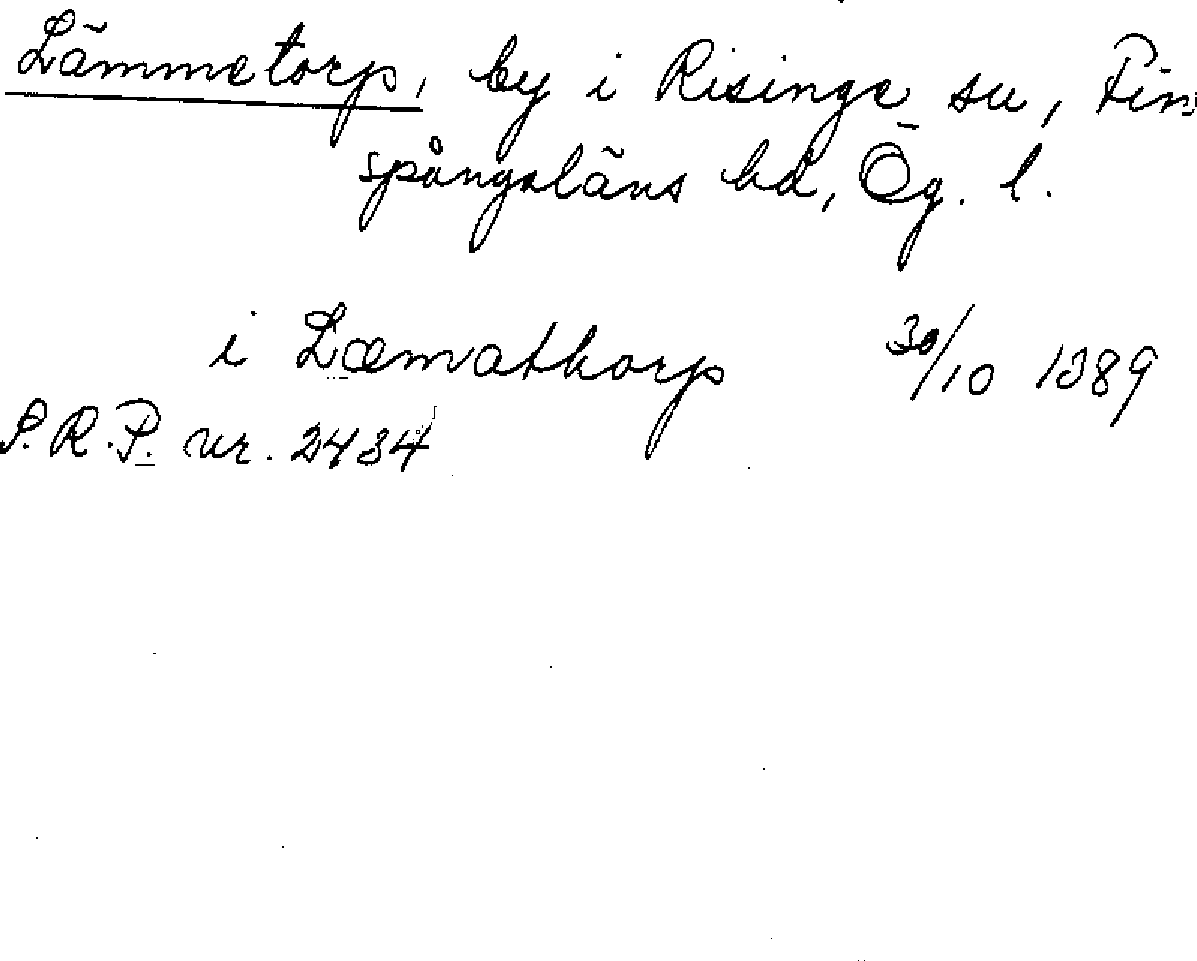 Lämmetorp, by i Risinge sn, Fin
spångaläns hd, Ög. l.
i Læmatkorp 30/10 1389
S.R.P. nr. 2434